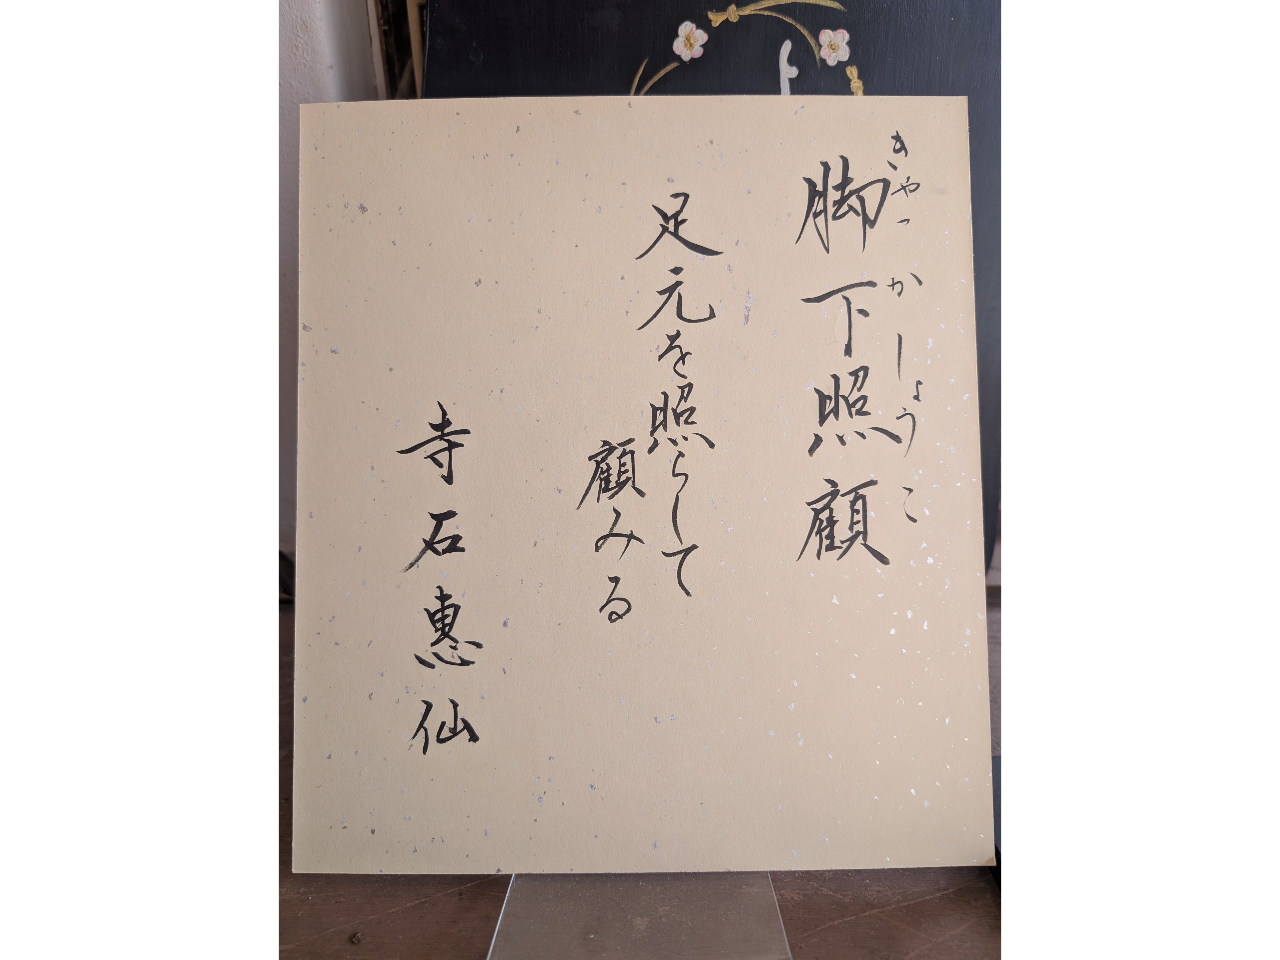 脚下照顧
きゃっかしょうこ
足元を照らして
顧みる
寺石惠仙